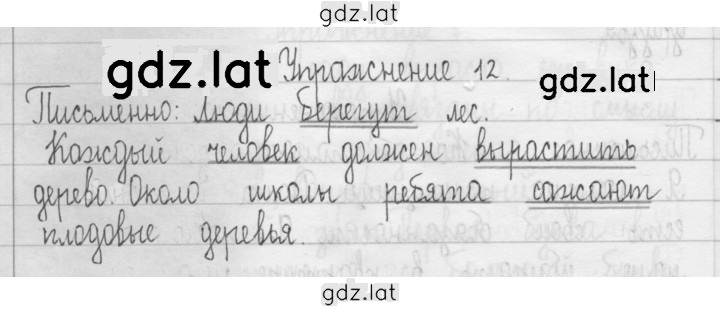 gdz.lat
gdz.lat Упражнение 12. gdz.lat
Письменно: Люди берегут лес.
Каждый человек должен вырастить
дерево. Около школы ребята сажают
плодовые деревья.
gdz.lat